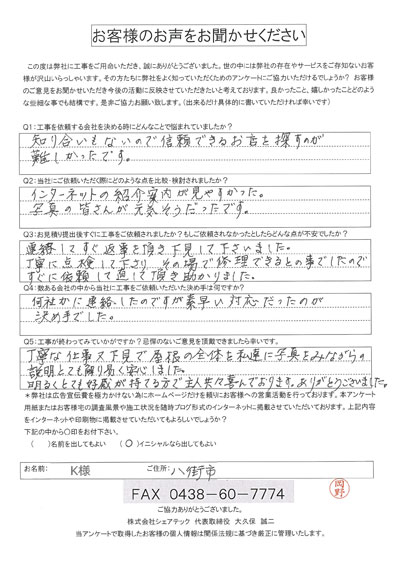 お客様のお声をお聞かせください
この度は弊社に工事をご用命いただき、誠にありがとうございました。世の中には弊社の存在やサービスをご存知ないお客
様が沢山いらっしゃいます。その方たちに弊社をよく知っていただくためのアンケートにご協力いただけるでしょうか？ お客様
のご意見をお聞かせいただき今後の活動に反映させていただきたいと考えております。良かったこと、嬉しかったことどのよう
な些細な事でも結構です。是非ご協力お願い致します。（出来るだけ具体的に書いていただければ幸いです）
Q1:工事を依頼する会社を決める時にどんなことで悩まれていましたか？
知り合いもないので信頼できるお店を探すのが
難しかったです。
Q2:当社にご依頼いただく際にどのような点を比較・検討されましたか？
インターネットの紹介案内が見やすかった。
写真の皆さんが元気そうだったです。
Q3:お見積り提出後すぐに工事をご依頼されましたか？もしご依頼されなかったとしたらどんな点が不安でしたか？
連絡してすぐ返事を頂き下見して下さいました。
丁寧に点検して下さり その場で修理できるとの事でしたので
すぐに依頼して直して頂き助かりました。
Q4:数ある会社の中から当社に工事をご依頼いただいた決め手は何ですか？
何社かに連絡したのですが素早い対応だったのが
決め手でした。
Q5:工事が終わってみていかがですか？忌憚のないご意見を頂戴できましたら幸いです。
丁寧な仕事又下見で屋根の全体を私達に写真をみながらの
説明とても解り易く安心しました。
明るくとても好感が持てる方で主人共々喜んでおります。ありがとうございました。
＊弊社は広告宣伝費を極力かけない為にホームページだけを頼りにお客様への営業活動を行っております。本アンケート
用紙またはお客様宅の調査風景や施工状況を随時ブログ形式のインターネットに掲載させていただいております。上記内容
をインターネットや印刷物に掲載させていただいてもよろしいでしょうか？
下記の中から〇印をお付下さい。
（　）名前を出してもよい （〇）イニシャルなら出してもよい
お名前: K様 ご住所: 八街市
FAX 0438-60-7774
岡野
ご協力ありがとうございました。
株式会社シェアテック 代表取締役 大久保 誠二
当アンケートで取得したお客様の個人情報は関係法規に基づき厳正に管理いたします。